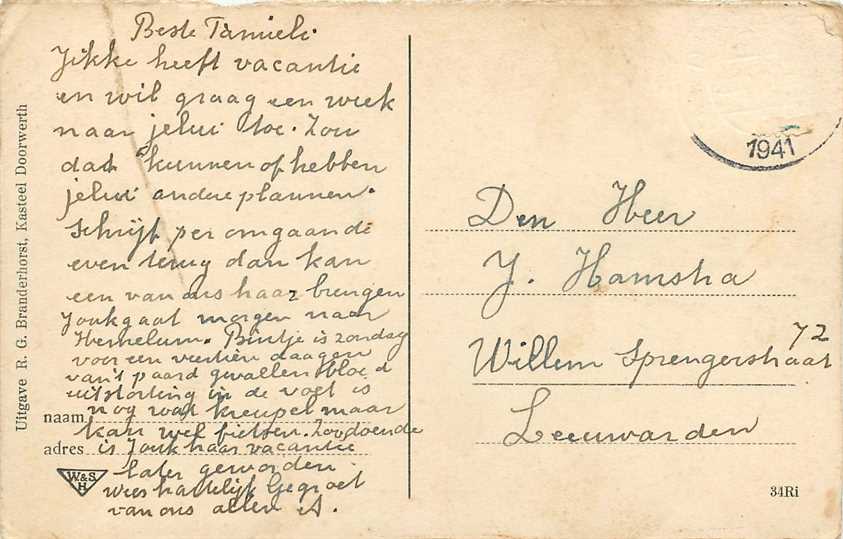 Beste Familie.
Jikke heeft vacantie
en wil graag een week
naar jelui toe. Zou
dat kunnen of hebben
jelui andere plannen.
Schrijf per omgaande
even terug dan kan
een van ons haar brengen
Jouk gaat morgen naar
Hemelum. Bintje is zondag
voor een veertien daagen
van't paard gevallen bloed
uitstorting in de voet is
nog wat kreupel maar
kan wel fietsen. Zoodoende
is Jouk haar vacantie
later geworden
wees hartelijk Gegroet
van ons allen A.
naam
adres
W&S
H
Uitgave R. G. Branderhorst, Kasteel Doorwerth
1941
Den Heer
J. Hamstra
Willem Sprengerstraat 72
Leeuwarden
34Ri